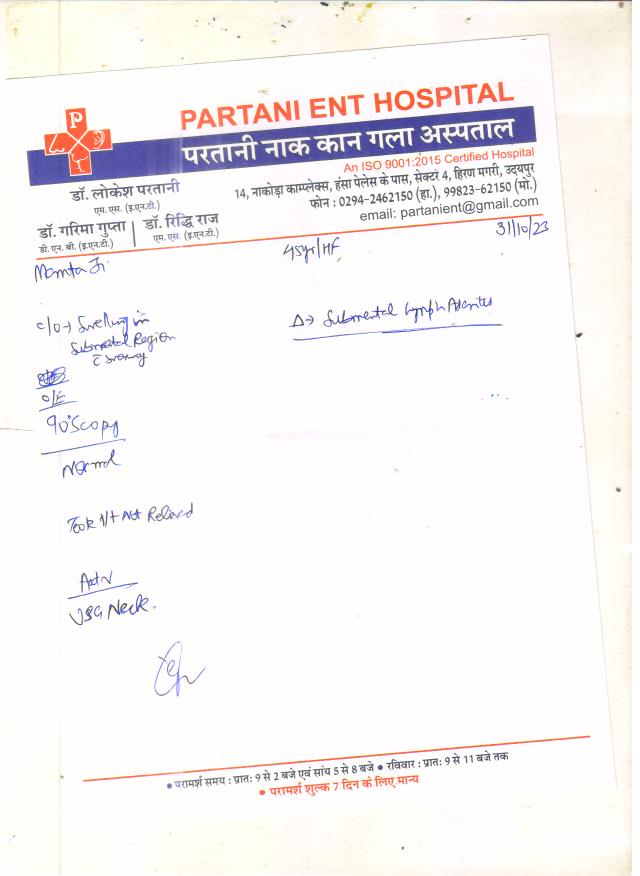 P
PARTANI ENT HOSPITAL
परतानी नाक कान गला अस्पताल
An ISO 9001:2015 Certified Hospital
14, नाकोड़ा काम्प्लेक्स, हंसा पेलेस के पास, सेक्टर 4, हिरण मगरी, उदयपुर
फोन : 0294-2462150 (हा.), 99823-62150 (मो.)
email: partanient@gmail.com
डॉ. लोकेश परतानी
एम. एस. (इ.एन.टी.)
डॉ. गरिमा गुप्ता | डॉ. रिद्धि राज
डी. एन. बी. (इ.एन.टी.) | एम. एस. (इ.एन.टी.)
Mamta Ji 45yr/HF 31/10/23
c/o → Swelling in
Submental Region
Δ → Submental Lymph Adenitis
O/E
90° Scopy
Normal
Took t/t Not Relieved
Adv
USG Neck.
• परामर्श समय : प्रातः 9 से 2 बजे एवं सांय 5 से 8 बजे • रविवार : प्रातः 9 से 11 बजे तक
• परामर्श शुल्क 7 दिन के लिए मान्य